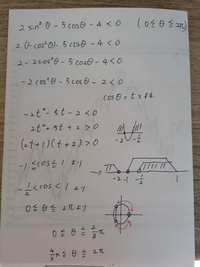 2 sin² θ - 5 cosθ - 4 < 0 (0 ≤ θ ≤ 2π)
2 (1-cos²θ) - 5 cosθ - 4 < 0
2 - 2cos²θ - 5 cosθ - 4 < 0
-2cos²θ - 5cosθ - 2 < 0
cosθ = t
-2t² - 5t - 2 < 0
2t² + 5t + 2 > 0
-2 -½
(2t+1)(t+2) > 0
-1 ≤ cosθ ≤ 1 より
→ -2 -1 -½ 1
-½ < cosθ ≤ 1 より
0 ≤ θ ≤ 2π より
0 ≤ θ ≤ ⅔π
4/3π ≤ θ ≤ 2π